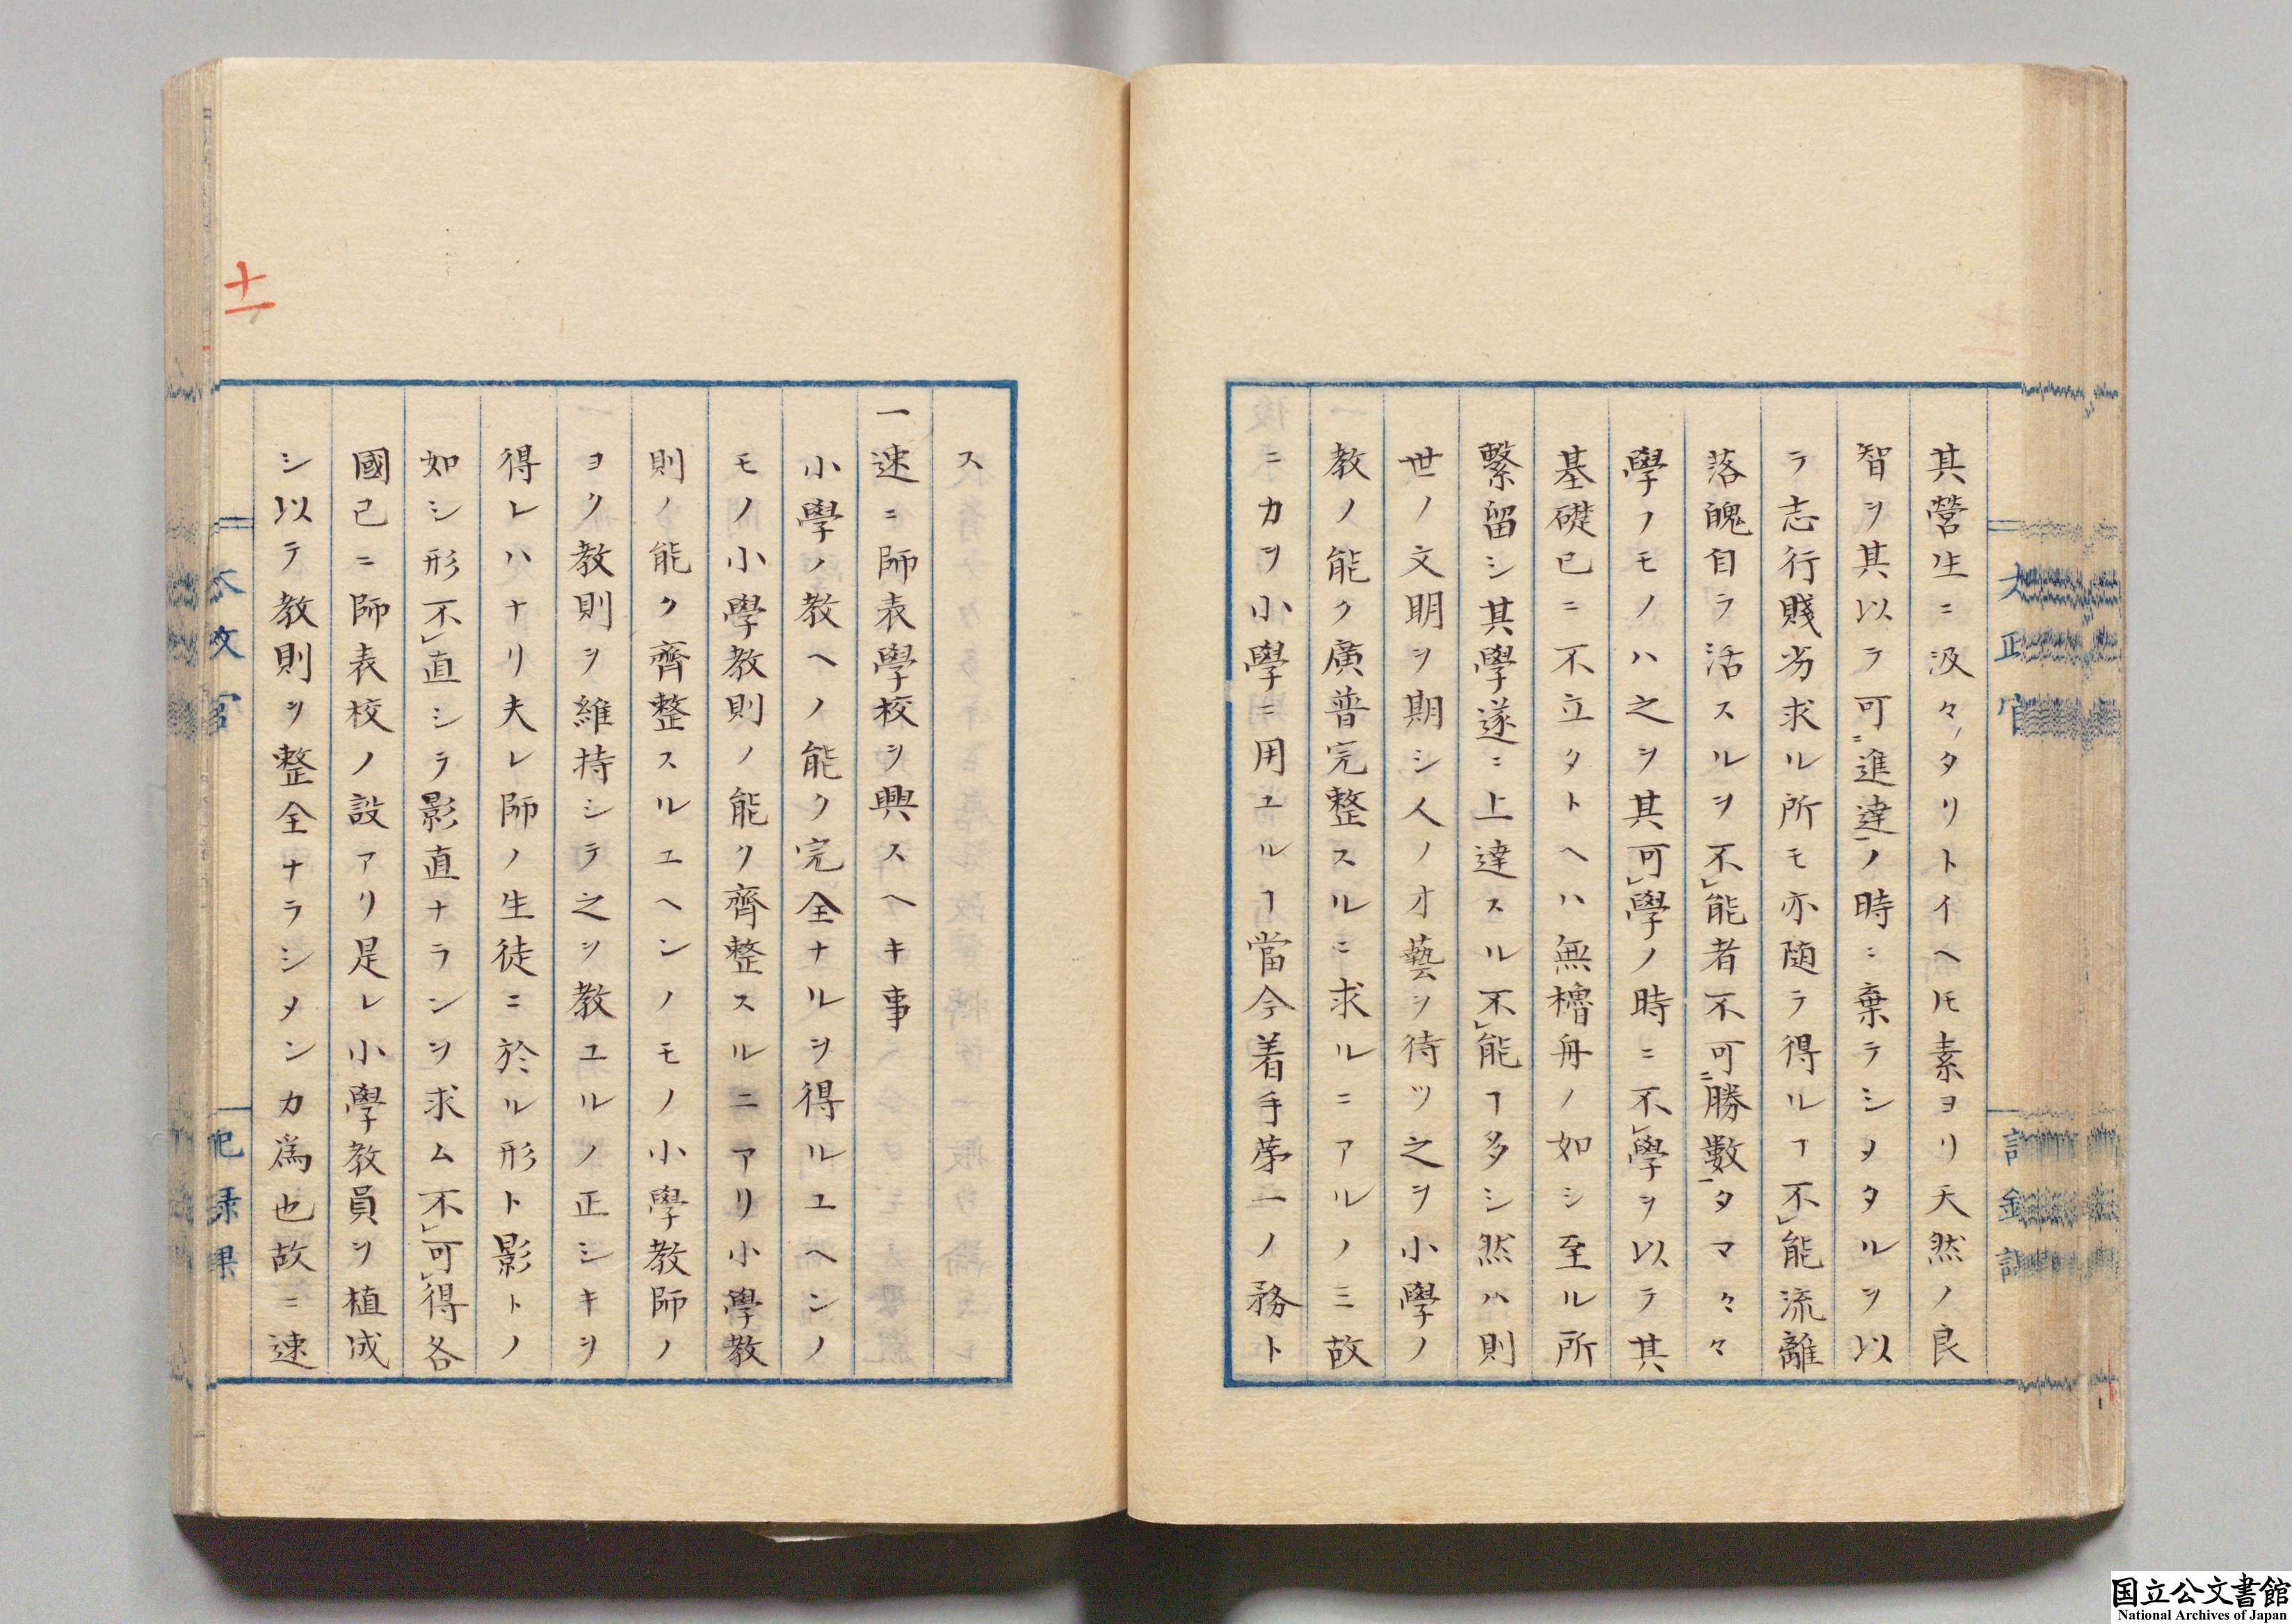 其營生ニ汲々タリトイヘ𪜈素ヨリ天然ノ良
智ヲ其以ラ可ニ進達一ノ時ニ棄ラシメタルヲ以
ラ志行賤劣求ル所モ亦随ラ得ルヿ不レ能流離
落魄自ラ活スルヲ不レ能者不可ニ勝數一タマクマ
學ノモノハ之ヲ其可レ學ノ時ニ不レ學ヲ以テ其
基礎已ニ不立タトヘハ無櫓舟ノ如シ至ル所
繫留シ其學遂ニ上達スル不レ能ヿ多シ然ハ則
世ノ文明ヲ期シ人ノオ藝ヲ待ツ之ヲ小學ノ
教ノ能ク廣普完整スルニ求ルニアルノミ故
ニカヲ小學ニ用ユルヿ當今着手苐一ノ務ト
ス
一速ニ師表學校ヲ興スヘキ事
小學ノ教ヘノ能ク完全ナルヲ得ルユヘンノ
モノ小學教則ノ能ク齊整スルニアリ小學教
則ノ能ク齊整スルユヘンノモノ小學教師ノ
ヨク教則ヲ維持シテ之ヲ教ユルノ正シキヲ
得レハナリ夫レ師ノ生徒ニ於ル形ト影トノ
如シ形不レ直シラ影直ナランヲ求ム不レ可レ得各
國已ニ師表校ノ設アリ是レ小學教員ヲ植成
シ以テ教則ヲ整全ナラシメンカ爲也故ニ速
十一
国立公文書館
National Archives of Japan